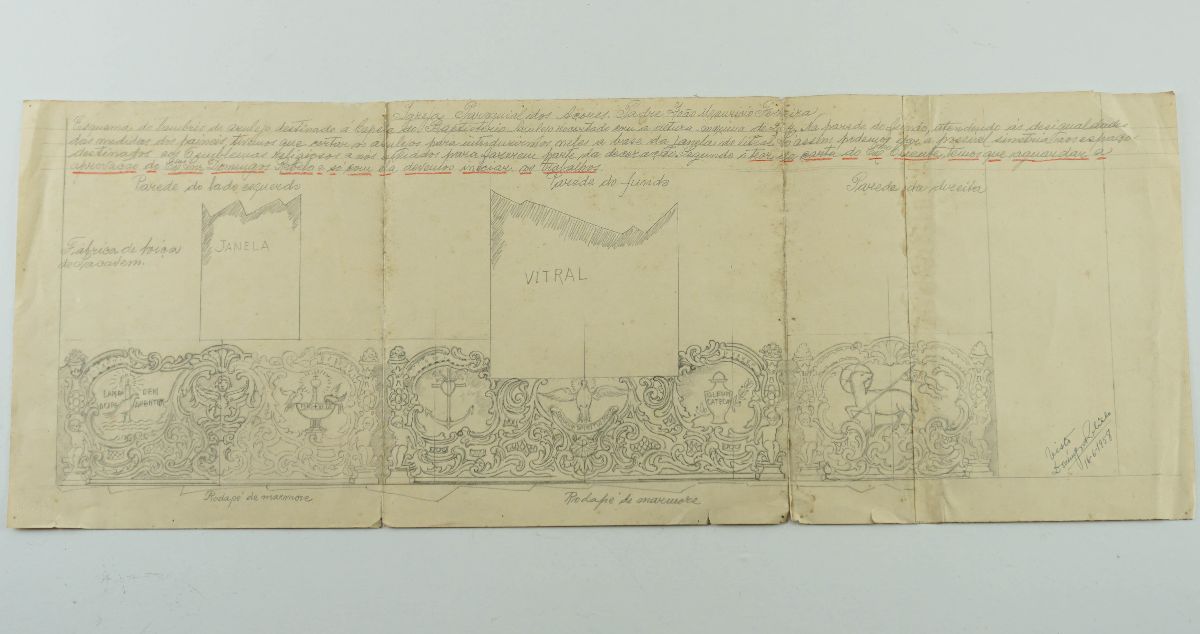 Igreja Paroquial dos Açores. Padre João Mauricio Ferreira
Esquema do lambris de azulejo destinado á Capela do Baptistério, recortado com a altura maxima de na parede do fundo, atendendo ás desigualdades
das medidas dos paineis tivemos que cortar os azulejos para introduzirmos neles a base da janela de vitral. Só assim podemos dar a possivel simetria aos espaços
destinados aos emblemas religiosos a nós enviados para fazerem parte da decoração. Segundo o teor da carta do Cliente, temos que aguardar a
aprovação do Domingos Rebelo e só com ela devemos iniciar os trabalhos.
Parede do lado esquerdo
Parede do fundo
Parede da direita
Fábrica de loiça
de Sacavem.
JANELA
VITRAL
Rodapé de marmore
Rodapé de marmore
Visto
Domingos Rebelo
1958